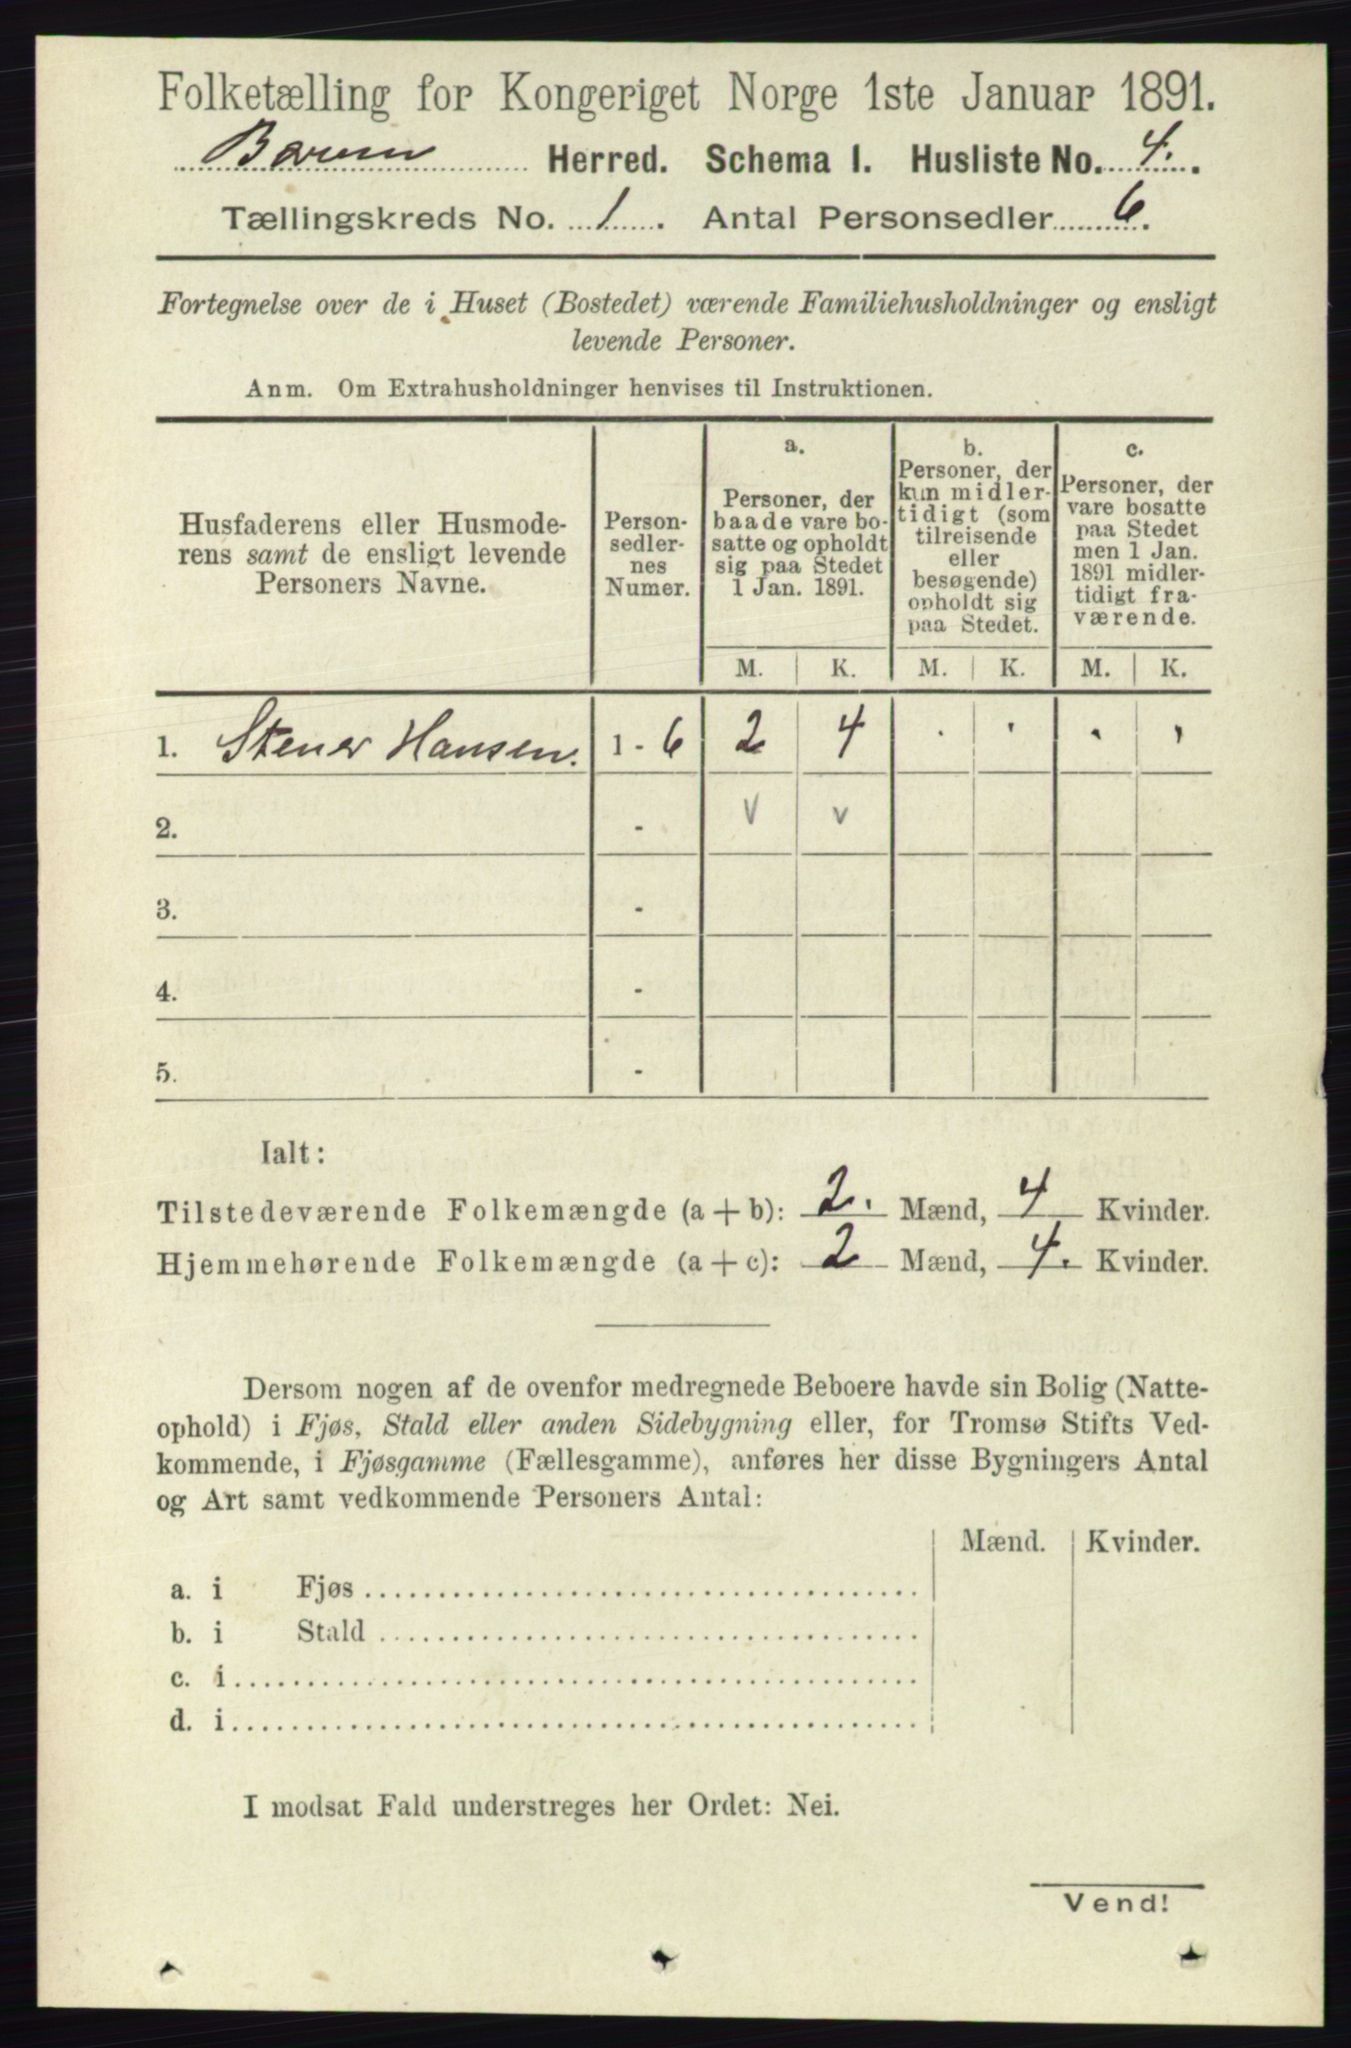 Folketælling for Kongeriget Norge 1ste Januar 1891.
Bærum Herred. Schema I. Husliste No. 4.
Tællingskreds No. 1. Antal Personsedler 6.
Fortegnelse over de i Huset (Bostedet) værende Familiehusholdninger og ensligt
levende Personer.
Anm. Om Extrahusholdninger henvises til Instruktionen.
Husfaderens eller Husmode-
rens samt de ensligt levende
Personers Navne.
Person-
sedler-
nes
Numer.
a.
Personer, der
baade vare bo-
satte og opholdt
sig paa Stedet
1 Jan. 1891.
b.
Personer, der
kun midler-
tidigt (som
tilreisende
eller
besøgende)
opholdt sig
paa Stedet.
c.
Personer, der
vare bosatte
paa Stedet
men 1 Jan.
1891 midler-
tidigt fra-
værende.
M. K. M. K. M. K.
1. Stener Hansen. 1 - 6 2 4 . . . .
2. - v v
3. -
4. -
5. -
Ialt:
Tilstedeværende Folkemængde (a + b): 2. Mænd, 4 Kvinder.
Hjemmehørende Folkemængde (a + c): 2 Mænd, 4. Kvinder.
Dersom nogen af de ovenfor medregnede Beboere havde sin Bolig (Natte-
ophold) i Fjøs, Stald eller anden Sidebygning eller, for Tromsø Stifts Ved-
kommende, i Fjøsgamme (Fællesgamme), anføres her disse Bygningers Antal
og Art samt vedkommende Personers Antal:
Mænd. Kvinder.
a. i Fjøs
b. i Stald
c. i
d. i
I modsat Fald understreges her Ordet: Nei.
Vend!